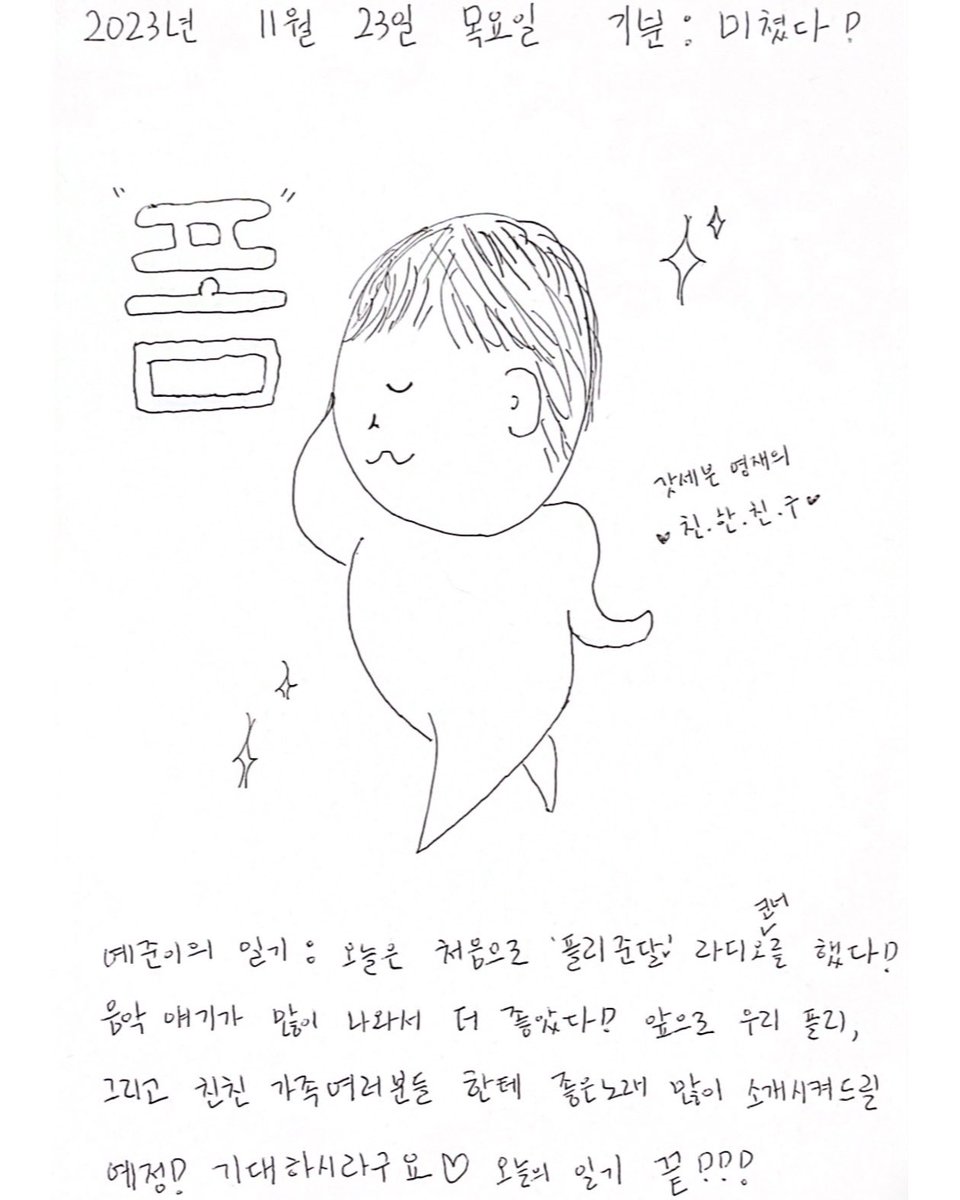 2023년 11월 23일 목요일 기분 : 미쳤다!
"폼"
갓세븐 영재의
♥친.한.친.구♥
코너
예준이의 일기 : 오늘은 처음으로 '플리준달' 라디오를 했다!
음악 얘기가 많이 나와서 더 좋았다!! 앞으로 우리 플리,
그리고 친친 가족여러분들 한테 좋은노래 많이 소개시켜드릴
예정! 기대하시라구요♡ 오늘의 일기 끝!!!